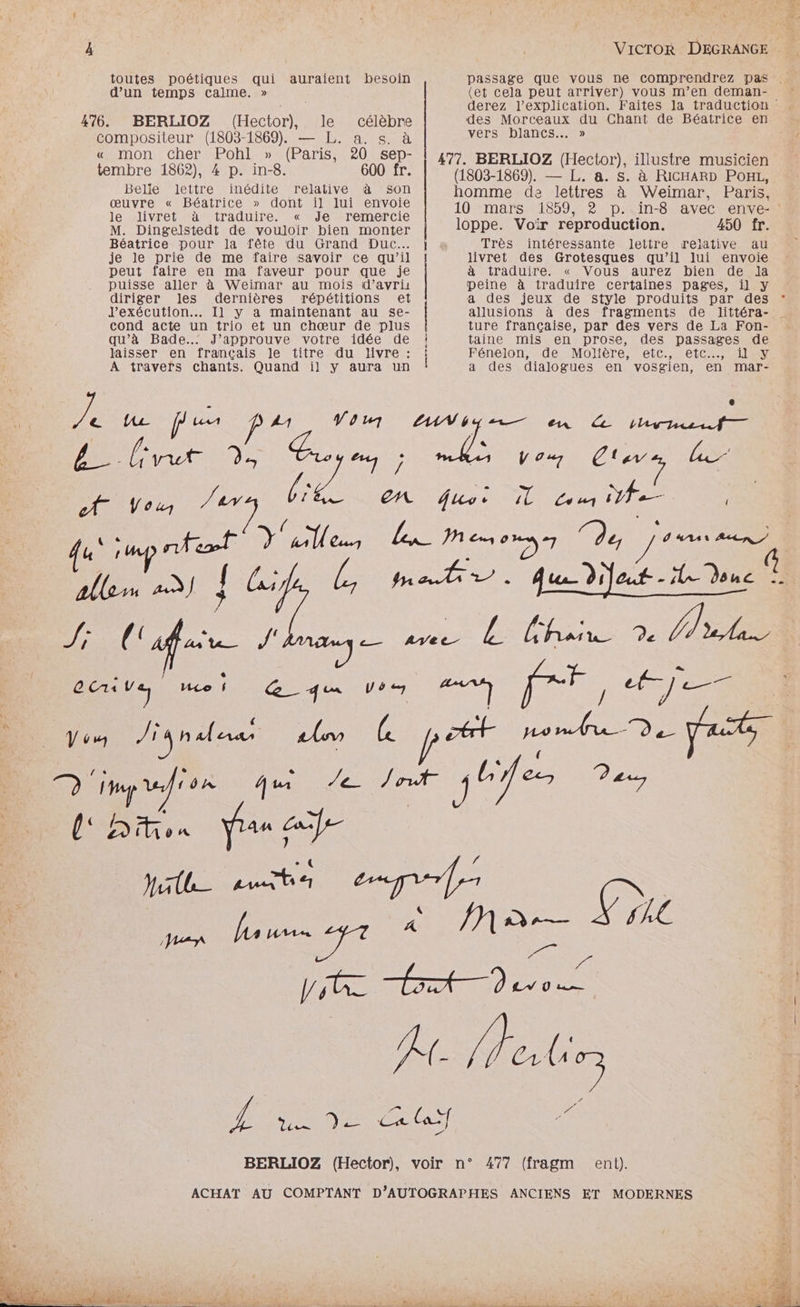 4
VICTOR DEGRANGE
toutes poétiques qui auraient besoin
d'un temps calme. »
476. BERLIOZ (Hector), le célèbre
compositeur (1803-1869). — L. a. s. à
« mon cher Pohl » (Paris, 20 sep-
tembre 1862), 4 p. in-8. 600 fr.
Belle lettre inédite relative à son
œuvre « Béatrice » dont il lui envoie
le livret à traduire. « Je remercie
M. Dingelstedt de vouloir bien monter
Béatrice pour la fête du Grand Duc...
je le prie de me faire savoir ce qu'il
peut faire en ma faveur pour que je
puisse aller à Weimar au mois d'avril
diriger les dernières répétitions et
l'exécution... Il y a maintenant au se-
cond acte un trio et un chœur de plus
qu'à Bade... J'approuve votre idée de
laisser en français le titre du livre :
A travers chants. Quand il y aura un
passage que vous ne comprendrez pas
(et cela peut arriver) vous m'en deman-
derez l'explication. Faites la traduction
des Morceaux du Chant de Béatrice en
vers blancs... »
477. BERLIOZ (Hector), illustre musicien
(1803-1869). — L. a. s. à RICHARD POHL,
homme de lettres à Weimar, Paris,
10 mars 1859, 2 p. in-8 avec enve-
loppe. Voir reproduction. 450 fr.
Très intéressante lettre relative au
livret des Grotesques qu'il lui envoie
à traduire. « Vous aurez bien de la
peine à traduire certaines pages, il y
a des jeux de style produits par des
allusions à des fragments de littéra-
ture française, par des vers de La Fon-
taine mis en prose, des passages de
Fénelon, de Molière, etc., etc..., il y
a des dialogues en vosgien, en mar-
Je ne puis pas vous envoyer en ce moment
le livret des Troyens ; mais vous l'avez lu
et vous savez bien en quoi il consiste
qu'importent d'ailleurs les mensonges des journaux
allemands ! laissez les mentir. que disent-ils donc ?
Si l'affaire s'arrange avec le libraire de
écrivez moi ce que vous aurez fait, et je
vous signalerai alors le petit nombre de fautes
d'impression qui se sont glissées dans
l'édition française
Mille amitiés empressées
mes hommages à Madame Pohl
Votre tout dévoué
H. Berlioz
4 rue de Calais
BERLIOZ (Hector), voir n° 477 (fragm ent).
ACHAT AU COMPTANT D'AUTOGRAPHES ANCIENS ET MODERNES